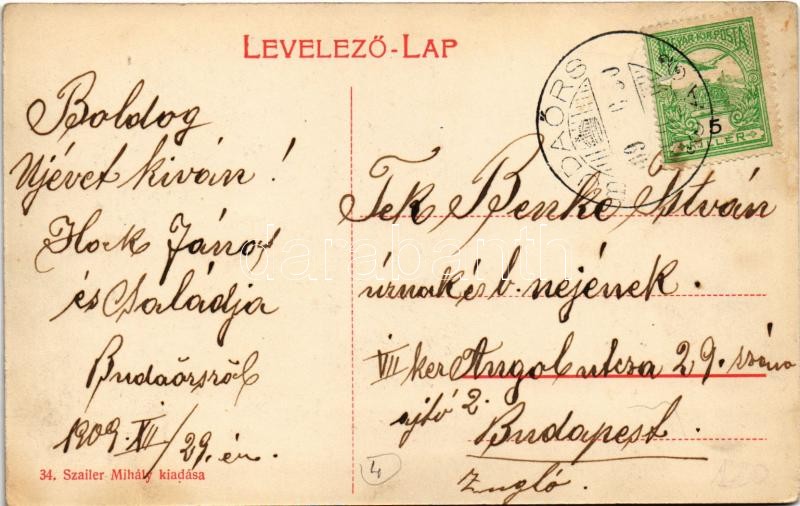 LEVELEZŐ-LAP
Boldog
Ujévet kíván!
Hock János
és Családja
Budaörsről
1909. XII/29. én.
34. Szailer Mihály kiadása
MAGYAR KIR. POSTA
5
BUDAÖRS
Tek Benke István
úrnak és b. nejének.
VII ker Angol utcza 29. szám
ajtó 2.
Budapest.
Zugló.
4
darabanth